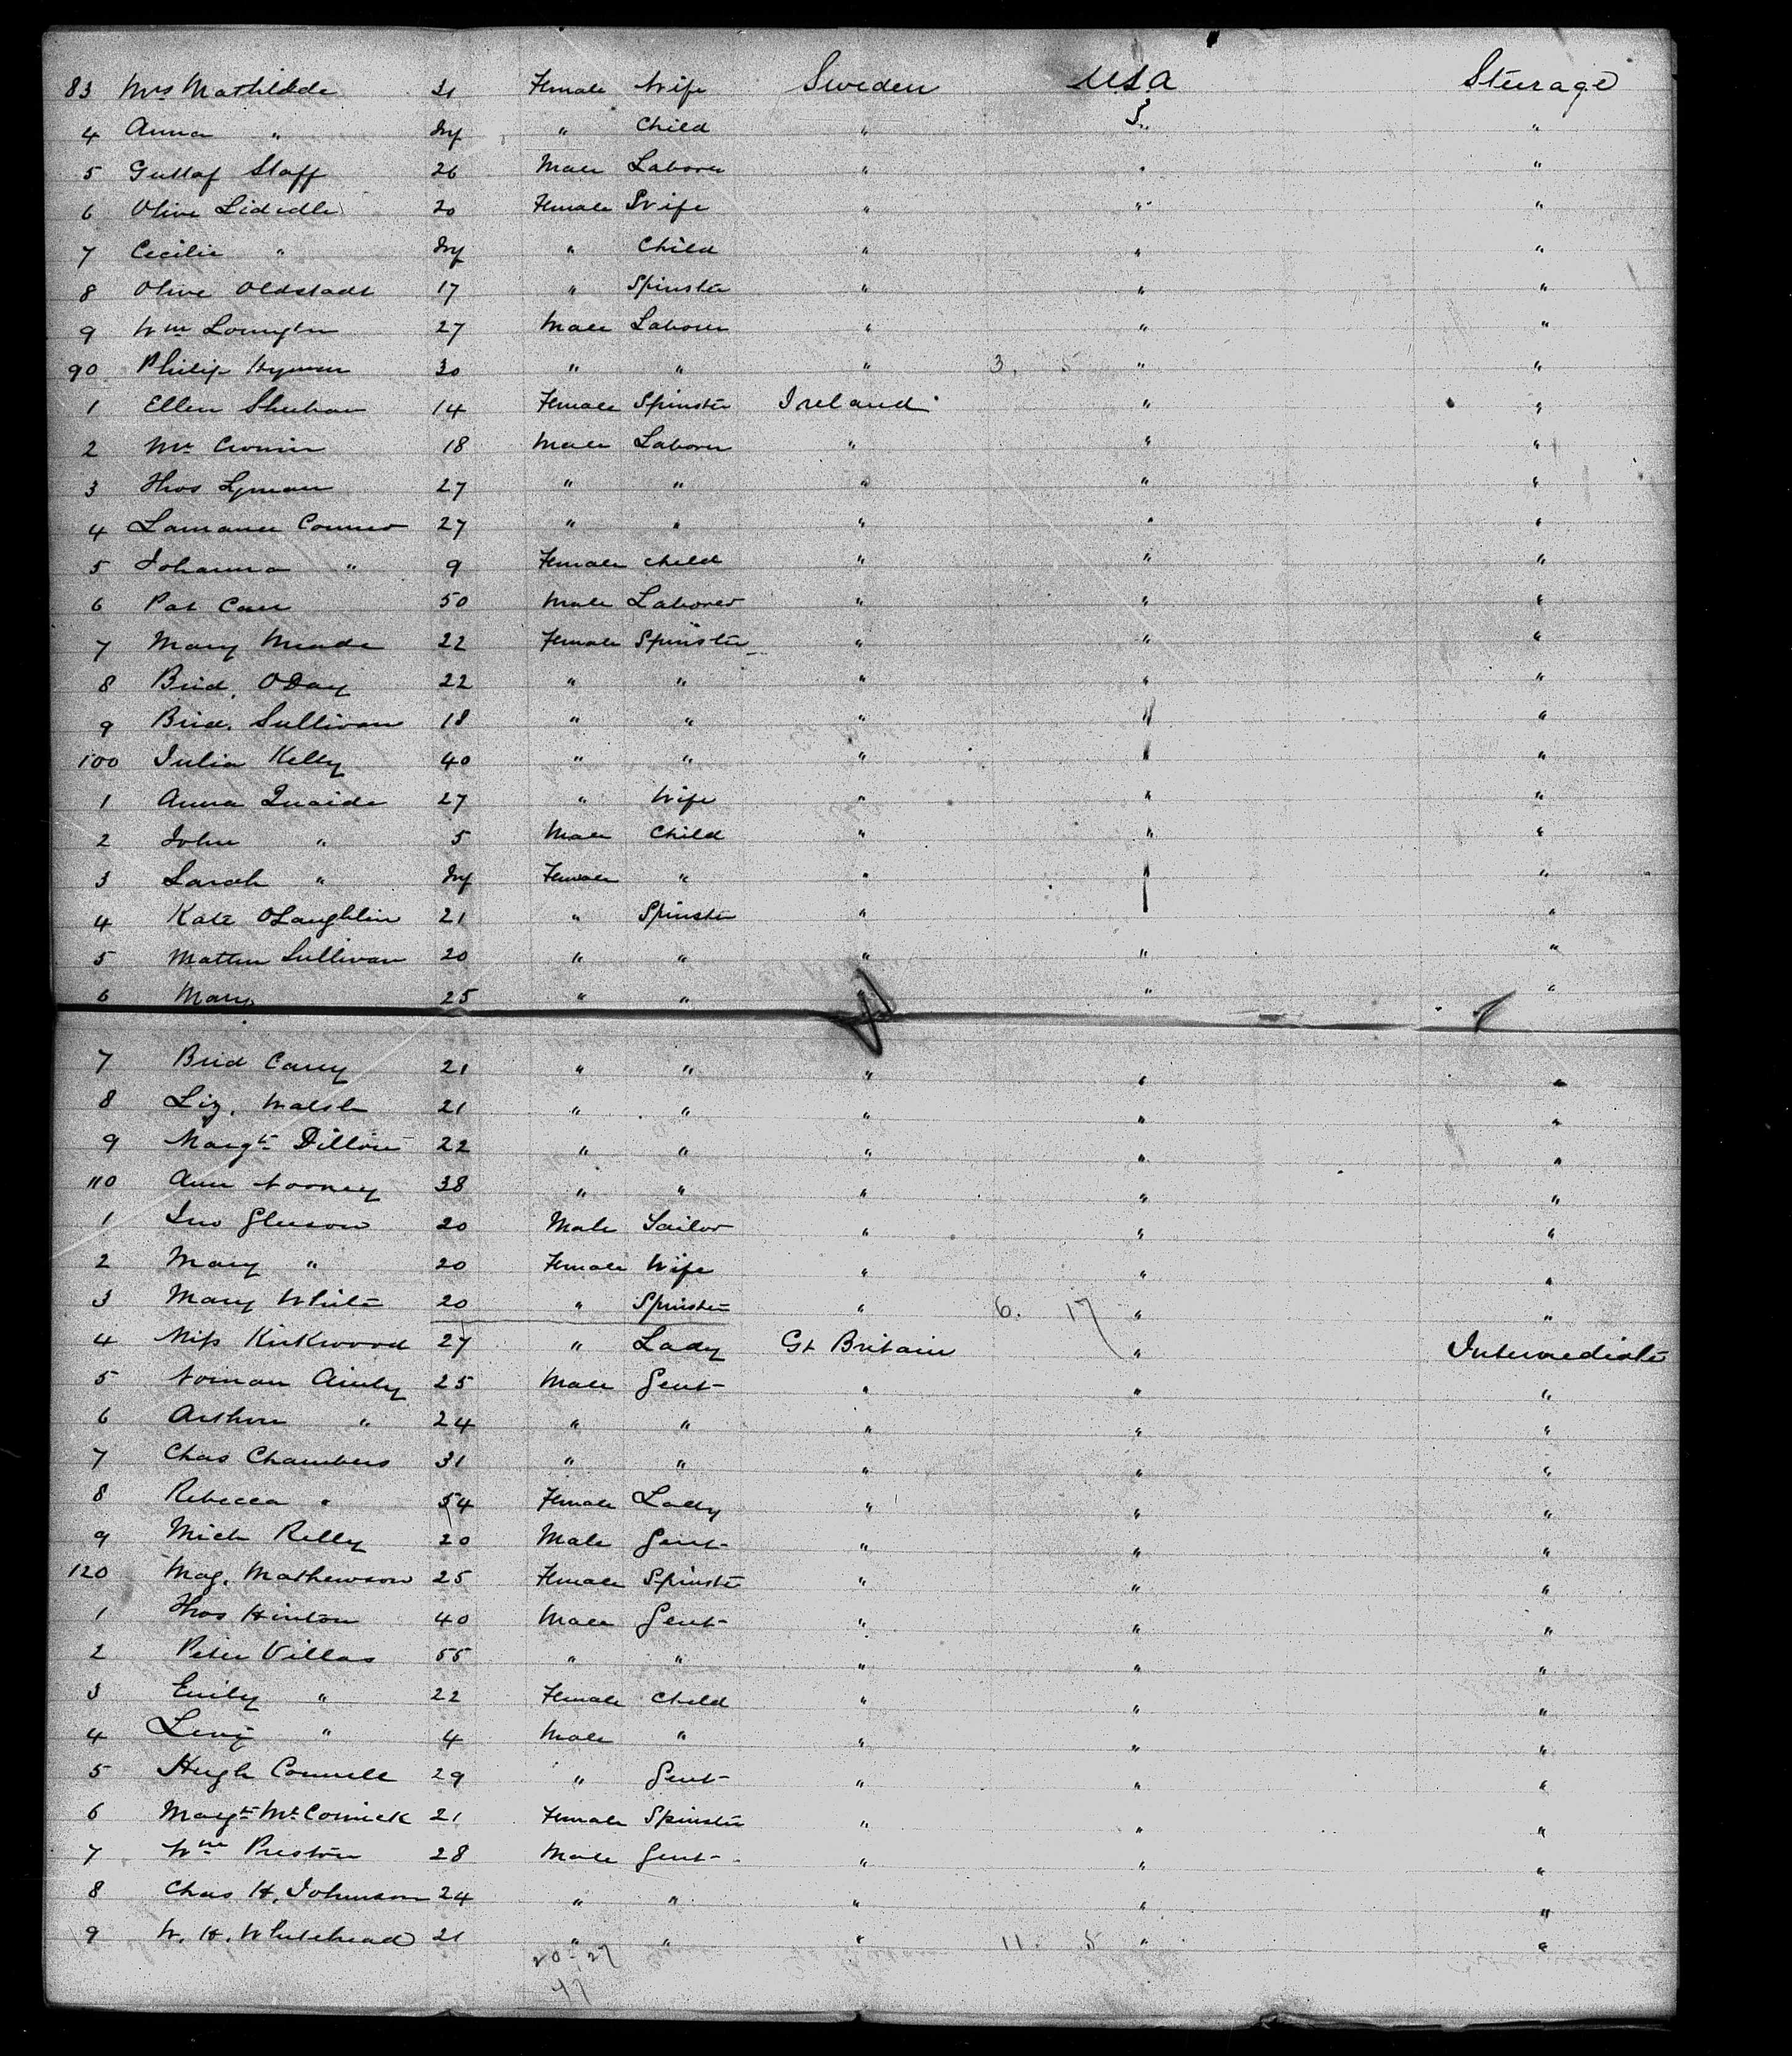 83 Mrs Mathilde 31 Female Wife Sweden USA Steerage
4 Anna " Inf " Child " " "
5 Gustaf Staff 26 Male Laborer " " "
6 Olive 20 Female Wife " " "
7 Cecilie " Inf " Child " " "
8 Olive Oldstadt 17 " Spinster " " "
9 Wm 27 Male Laborer " " "
90 Philip Hyman 30 " " " 3. 5 " "
1 Ellen Sheehan 14 Female Spinster Ireland " "
2 Cronin 18 Male Laborer " " "
3 Thos Lyman 27 " " " " "
4 Connor 27 " " " " "
5 Johanna " 9 Female Child " " "
6 Pat Carr 50 Male Laborer " " "
7 Mary Meade 22 Female Spinster " " "
8 Brid. ODay 22 " " " " "
9 Brid. Sullivan 18 " " " " "
100 Julia Kelly 40 " " " " "
1 Anna Quaide 27 " Wife " " "
2 John " 5 Male Child " " "
3 Sarah " Inf Female " " " "
4 Kate OLaughlin 21 " Spinster " " "
5 Sullivan 20 " " " " "
6 Mary 25 " " " " "
7 Brid Carey 21 " " " " "
8 Liz. Walsh 21 " " " " "
9 Margt Dillon 22 " " " " "
110 Ann Nooney 38 " " " " "
1 Jno Gleeson 20 Male Tailor " " "
2 Mary " 20 Female Wife " " "
3 Mary White 20 " Spinster " 6. 17 " "
4 Miss Kirkwood 27 " Lady Gt Britain " Intermediate
5 Norman Ainly 25 Male Gent " " "
6 Arthur " 24 " " " " "
7 Chas Chambers 31 " " " " "
8 Rebecca " 54 Female Lady " " "
9 Mich Relly 20 Male Gent " " "
120 Mag. Mathewson 25 Female Spinster " " "
1 Thos Hinton 40 Male Gent " " "
2 Peter Villas 55 " " " " "
3 Emily " 22 Female Child " " "
4 Levy " 4 Male " " " "
5 Hugh Connell 29 " Gent " " "
6 Margt McComick 21 Female Spinster " " "
7 Wm Preston 28 Male Gent " " "
8 Chas H. Johnson 24 " " " " "
9 W. H. Whitehead 21 " " " 11. 5 " "
20 - 27
47